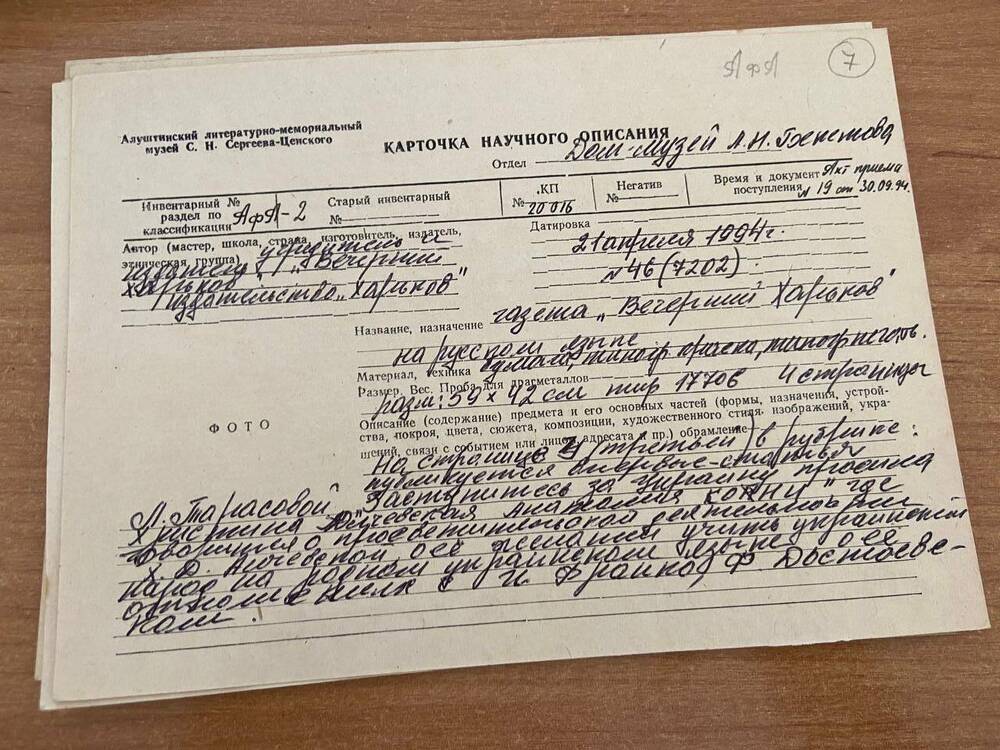 АфА
7
Алуштинский литературно-мемориальный
музей С. Н. Сергеева-Ценского
КАРТОЧКА НАУЧНОГО ОПИСАНИЯ
Отдел Дом-музей А.Н. Бекетова
Инвентарный №
раздел по
классификации АфА-2
Старый инвентарный
№
КП
№ 20016
Негатив
№
Время и документ
поступления Акт приема
N 19 от 30.09.94.
Автор (мастер, школа, страна, изготовитель, издатель,
этническая, группа) учредитель и
издатель „Вечерний
Харьков"
издательство „Харьков"
Датировка
21 апреля 1994г.
N 46 (7202)
Название, назначение газета „Вечерний Харьков"
на русском языке
Материал, техника бумага, типогр. краска, типогр. печать.
Размер, Вес. Проба для драгметаллов
разм: 59 × 42 см тир 17706 4 страницы
Описание (содержание) предмета и его основных частей (формы, назначения, устрой-
ства, покроя, цвета, сюжета, композиции, художественного стиля, изображений, укра-
шений, связи с событием или лицом, адресата и пр.) обрамление
ФОТО
На странице 3 (третьей) в рубрике:
публикуется впервые статья
А. Тарасовой „Заступитесь за Украину просила
Христина Алчевская Анатомия", где
говорится о просветительской деятельности
Х. Д. Алчевской, о её желании учить украинский
народ на родном украинском языке, о её
с И. Франко, Ф. Достоевс-
ким.